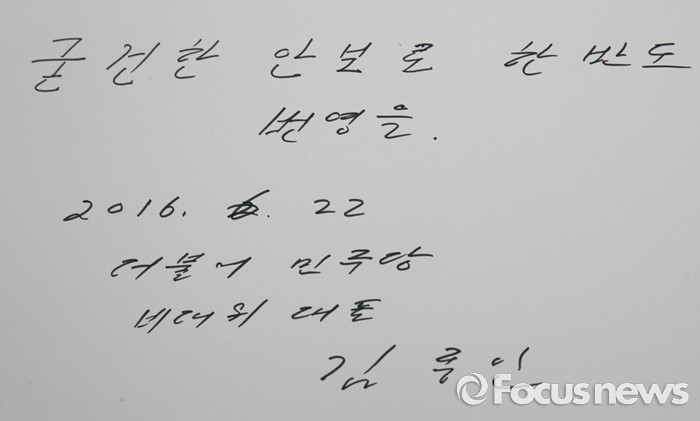 굳건한 안보로 한반도
번영을.
2016. 6. 22
더불어 민주당
비대위 대표
김종인
Focusnews